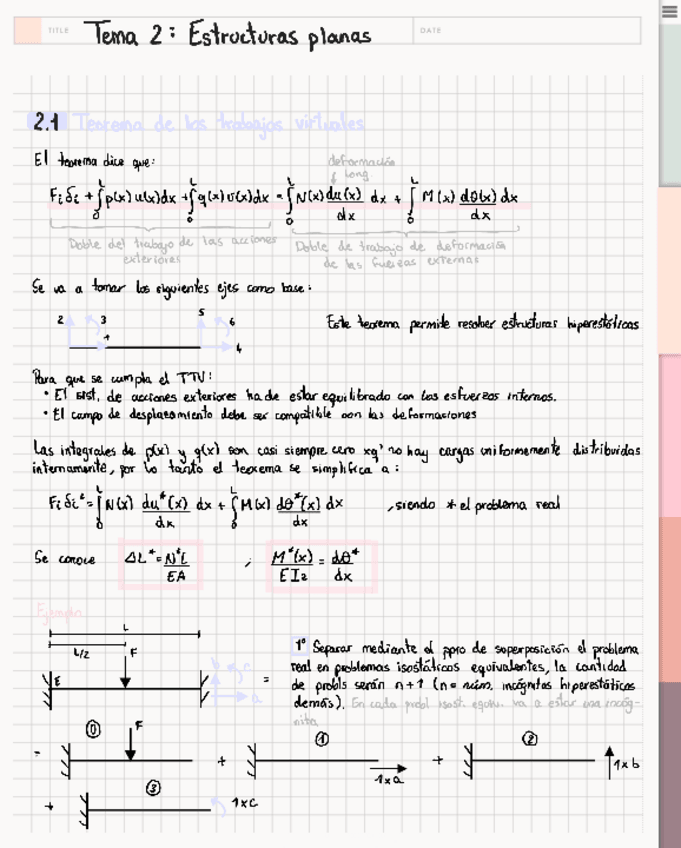 TITLE Tema 2: Estructuras planas DATE
2.1 Teorema de los trabajos virtuales
El teorema dice que:
deformación
long
Fiδi + ∫₀ᴸ p(x) u(x)dx + ∫₀ᴸ q(x) v(x)dx = ∫₀ᴸ N(x) du(x)/dx dx + ∫₀ᴸ M(x) dθ(x)/dx dx
Doble del trabajo de las acciones
exteriores
Doble de trabajo de deformación
de las fuerzas externas
Se va a tomar los siguientes ejes como base:
2 3 1 5 6 4
Este teorema permite resolver estructuras hiperestáticas
Para que se cumpla el TTV:
· El sist. de acciones exteriores ha de estar equilibrado con los esfuerzos internos.
· El campo de desplazamiento debe ser compatible con las deformaciones
Las integrales de p(x) y q(x) son casi siempre cero xq' no hay cargas uniformemente distribuidas
internamente, por lo tanto el teorema se simplifica a:
Fiδi* = ∫₀ᴸ N(x) du*(x)/dx dx + ∫₀ᴸ M(x) dθ*(x)/dx dx , siendo * el problema real
Se conoce ΔL* = N*L/EA ; M*(x)/EIz = dθ*/dx
Ejemplo
L
L/2 F
E
b c a
=
1º Separar mediante el ppio de superposición el problema
real en problemas isostáticos equivalentes, la cantidad
de probls serán n+1 (n = núm. incógnitas hiperestáticas
demás). En cada probl isost. equiv. va a estar una incóg-
nita
= 0 F + 1 1xa + 2 1xb
+ 3 1xc